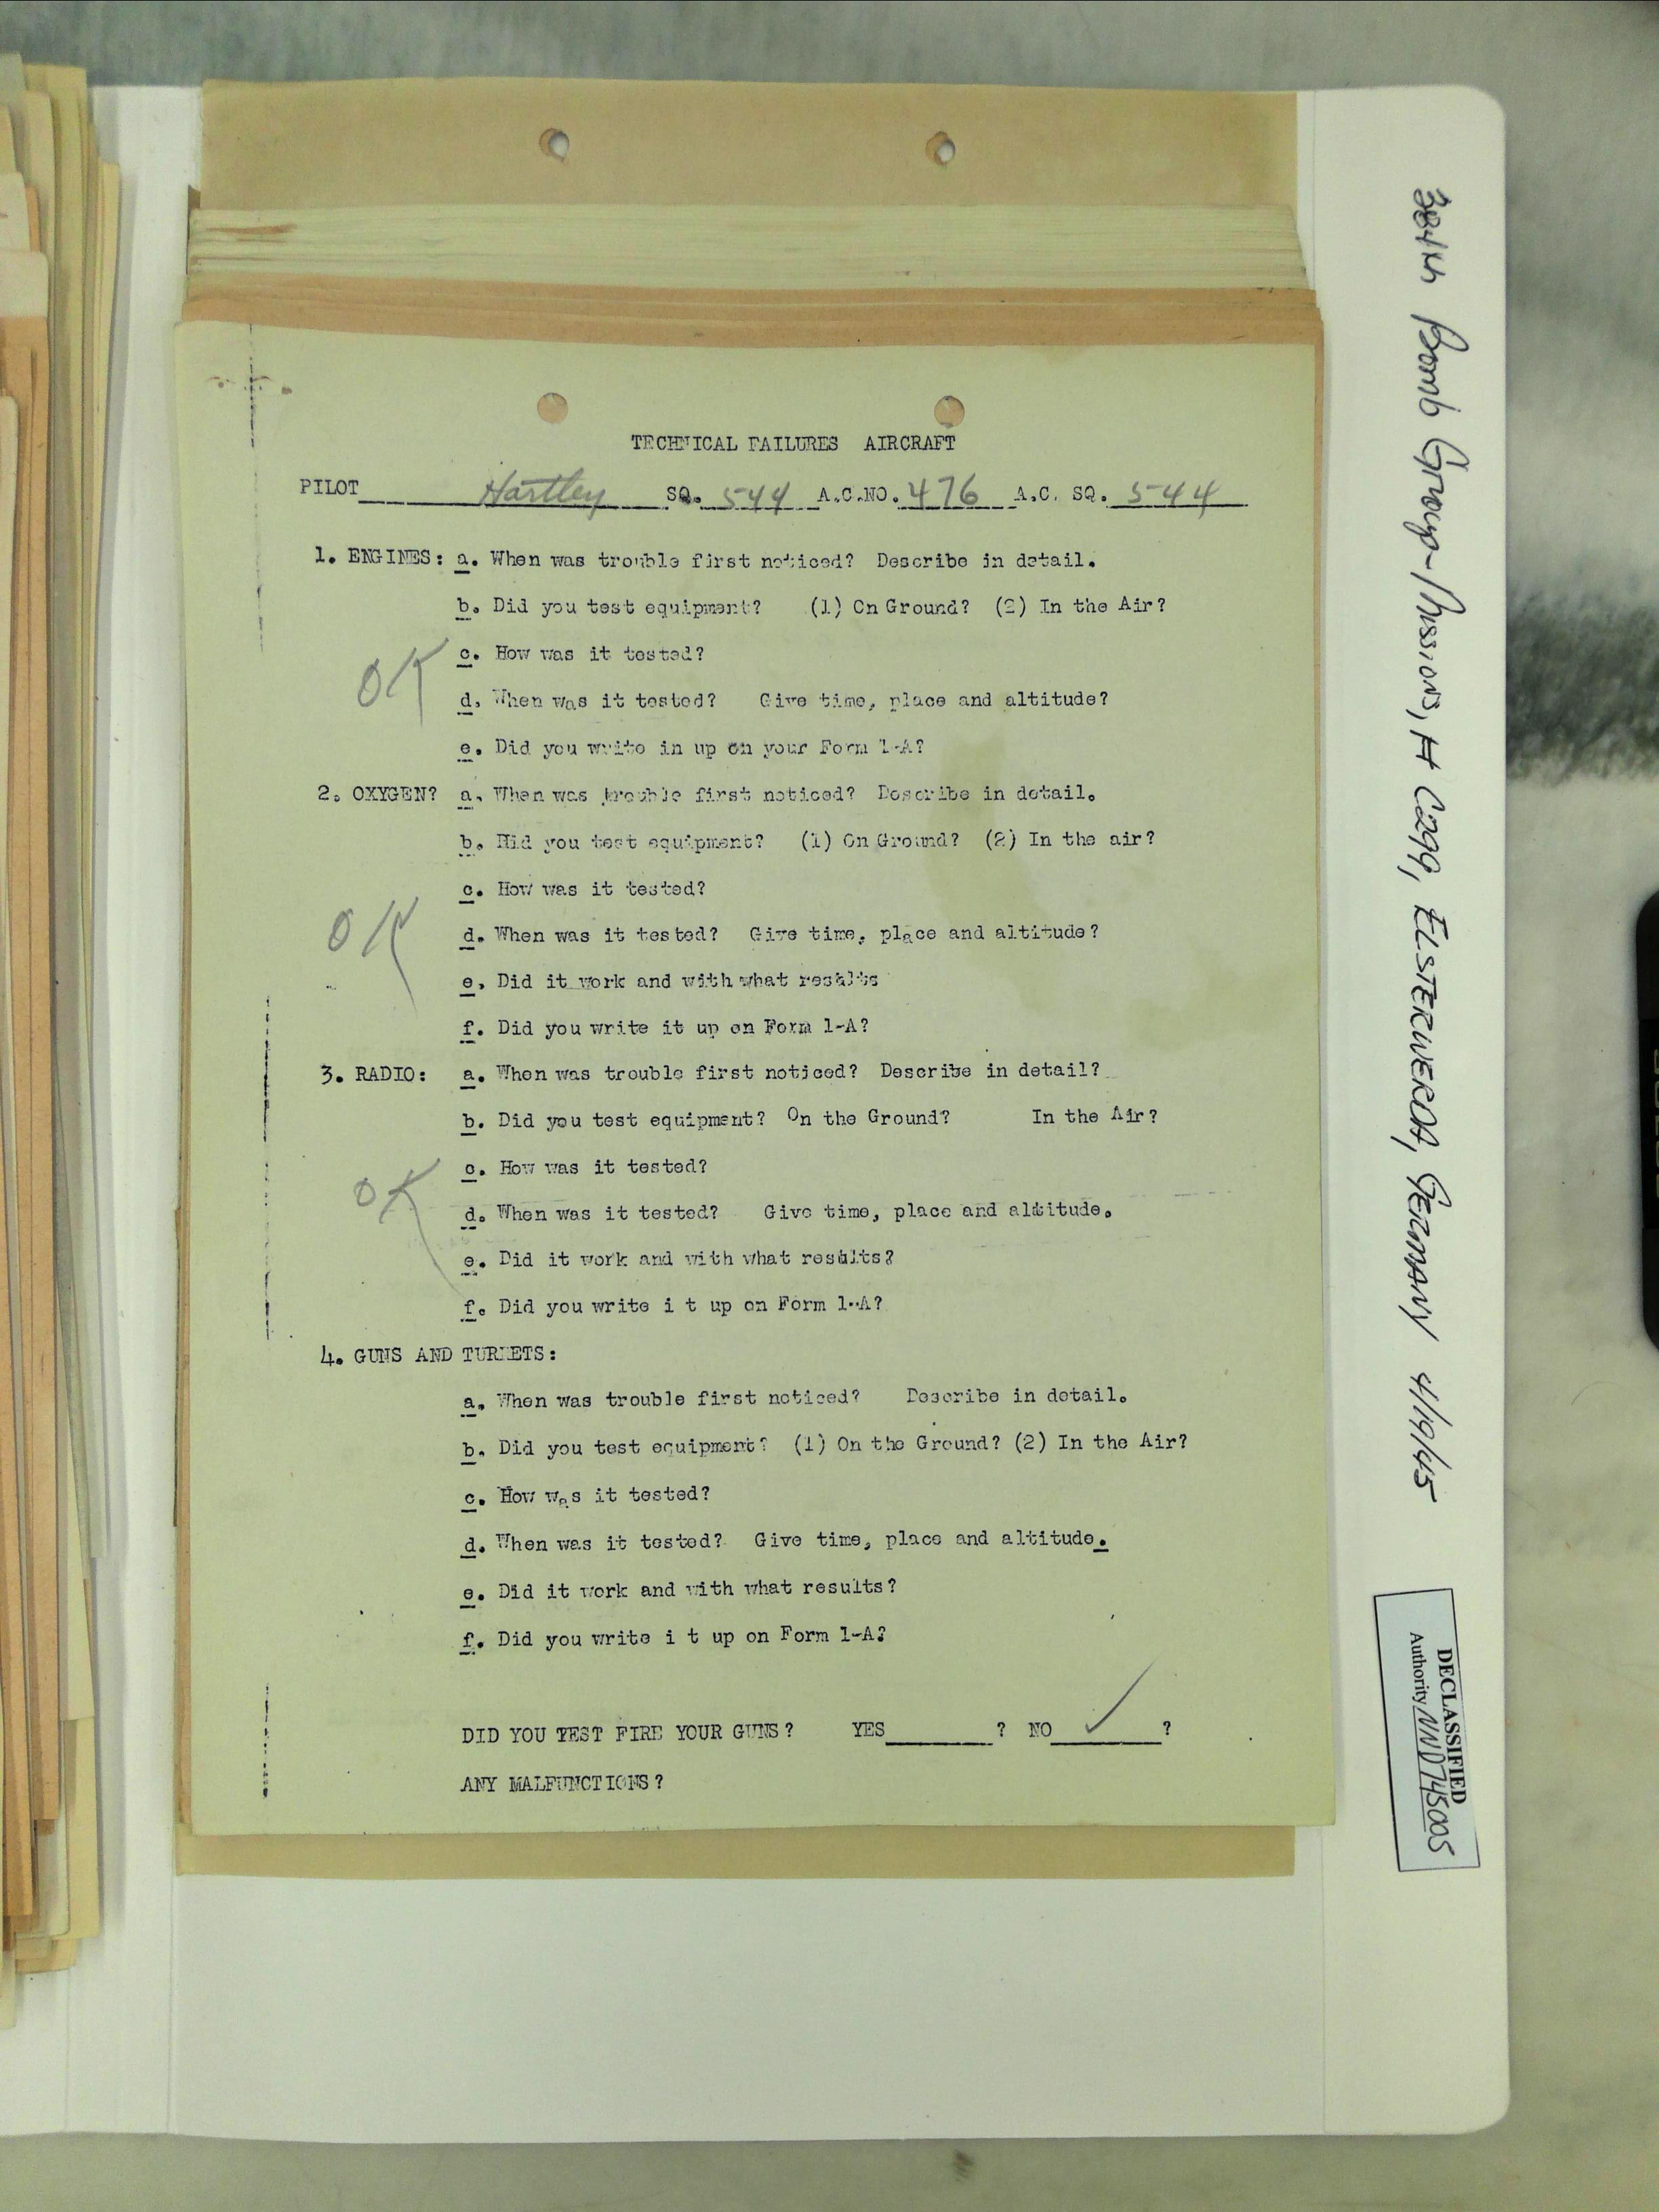 TECHNICAL FAILURES AIRCRAFT
PILOT Hartley SQ. 544 A.C.NO. 476 A.C. SQ. 544
1. ENGINES: a. When was trouble first noticed? Describe in detail.
b. Did you test equipment? (1) On Ground? (2) In the Air?
c. How was it tested?
OK
d. When was it tested? Give time, place and altitude?
e. Did you write in up on your Form 1-A?
2. OXYGEN? a. When was trouble first noticed? Describe in detail.
b. Hid you test equipment? (1) On Ground? (2) In the air?
c. How was it tested?
OK
d. When was it tested? Give time, place and altitude?
e. Did it work and with what results
f. Did you write it up on Form 1-A?
3. RADIO: a. When was trouble first noticed? Describe in detail?
b. Did you test equipment? On the Ground? In the Air?
c. How was it tested?
OK
d. When was it tested? Give time, place and altitude.
e. Did it work and with what results?
f. Did you write i t up on Form 1-A?
4. GUNS AND TURRETS:
a. When was trouble first noticed? Describe in detail.
b. Did you test equipment? (1) On the Ground? (2) In the Air?
c. How was it tested?
d. When was it tested? Give time, place and altitude.
e. Did it work and with what results?
f. Did you write i t up on Form 1-A?
DID YOU TEST FIRE YOUR GUNS? YES ? NO ✓ ?
ANY MALFUNCTIONS?
384th Bomb Group-Missions, # 299, ELSTERWERDA, GERMANY 4/19/45
DECLASSIFIED
Authority NND745005